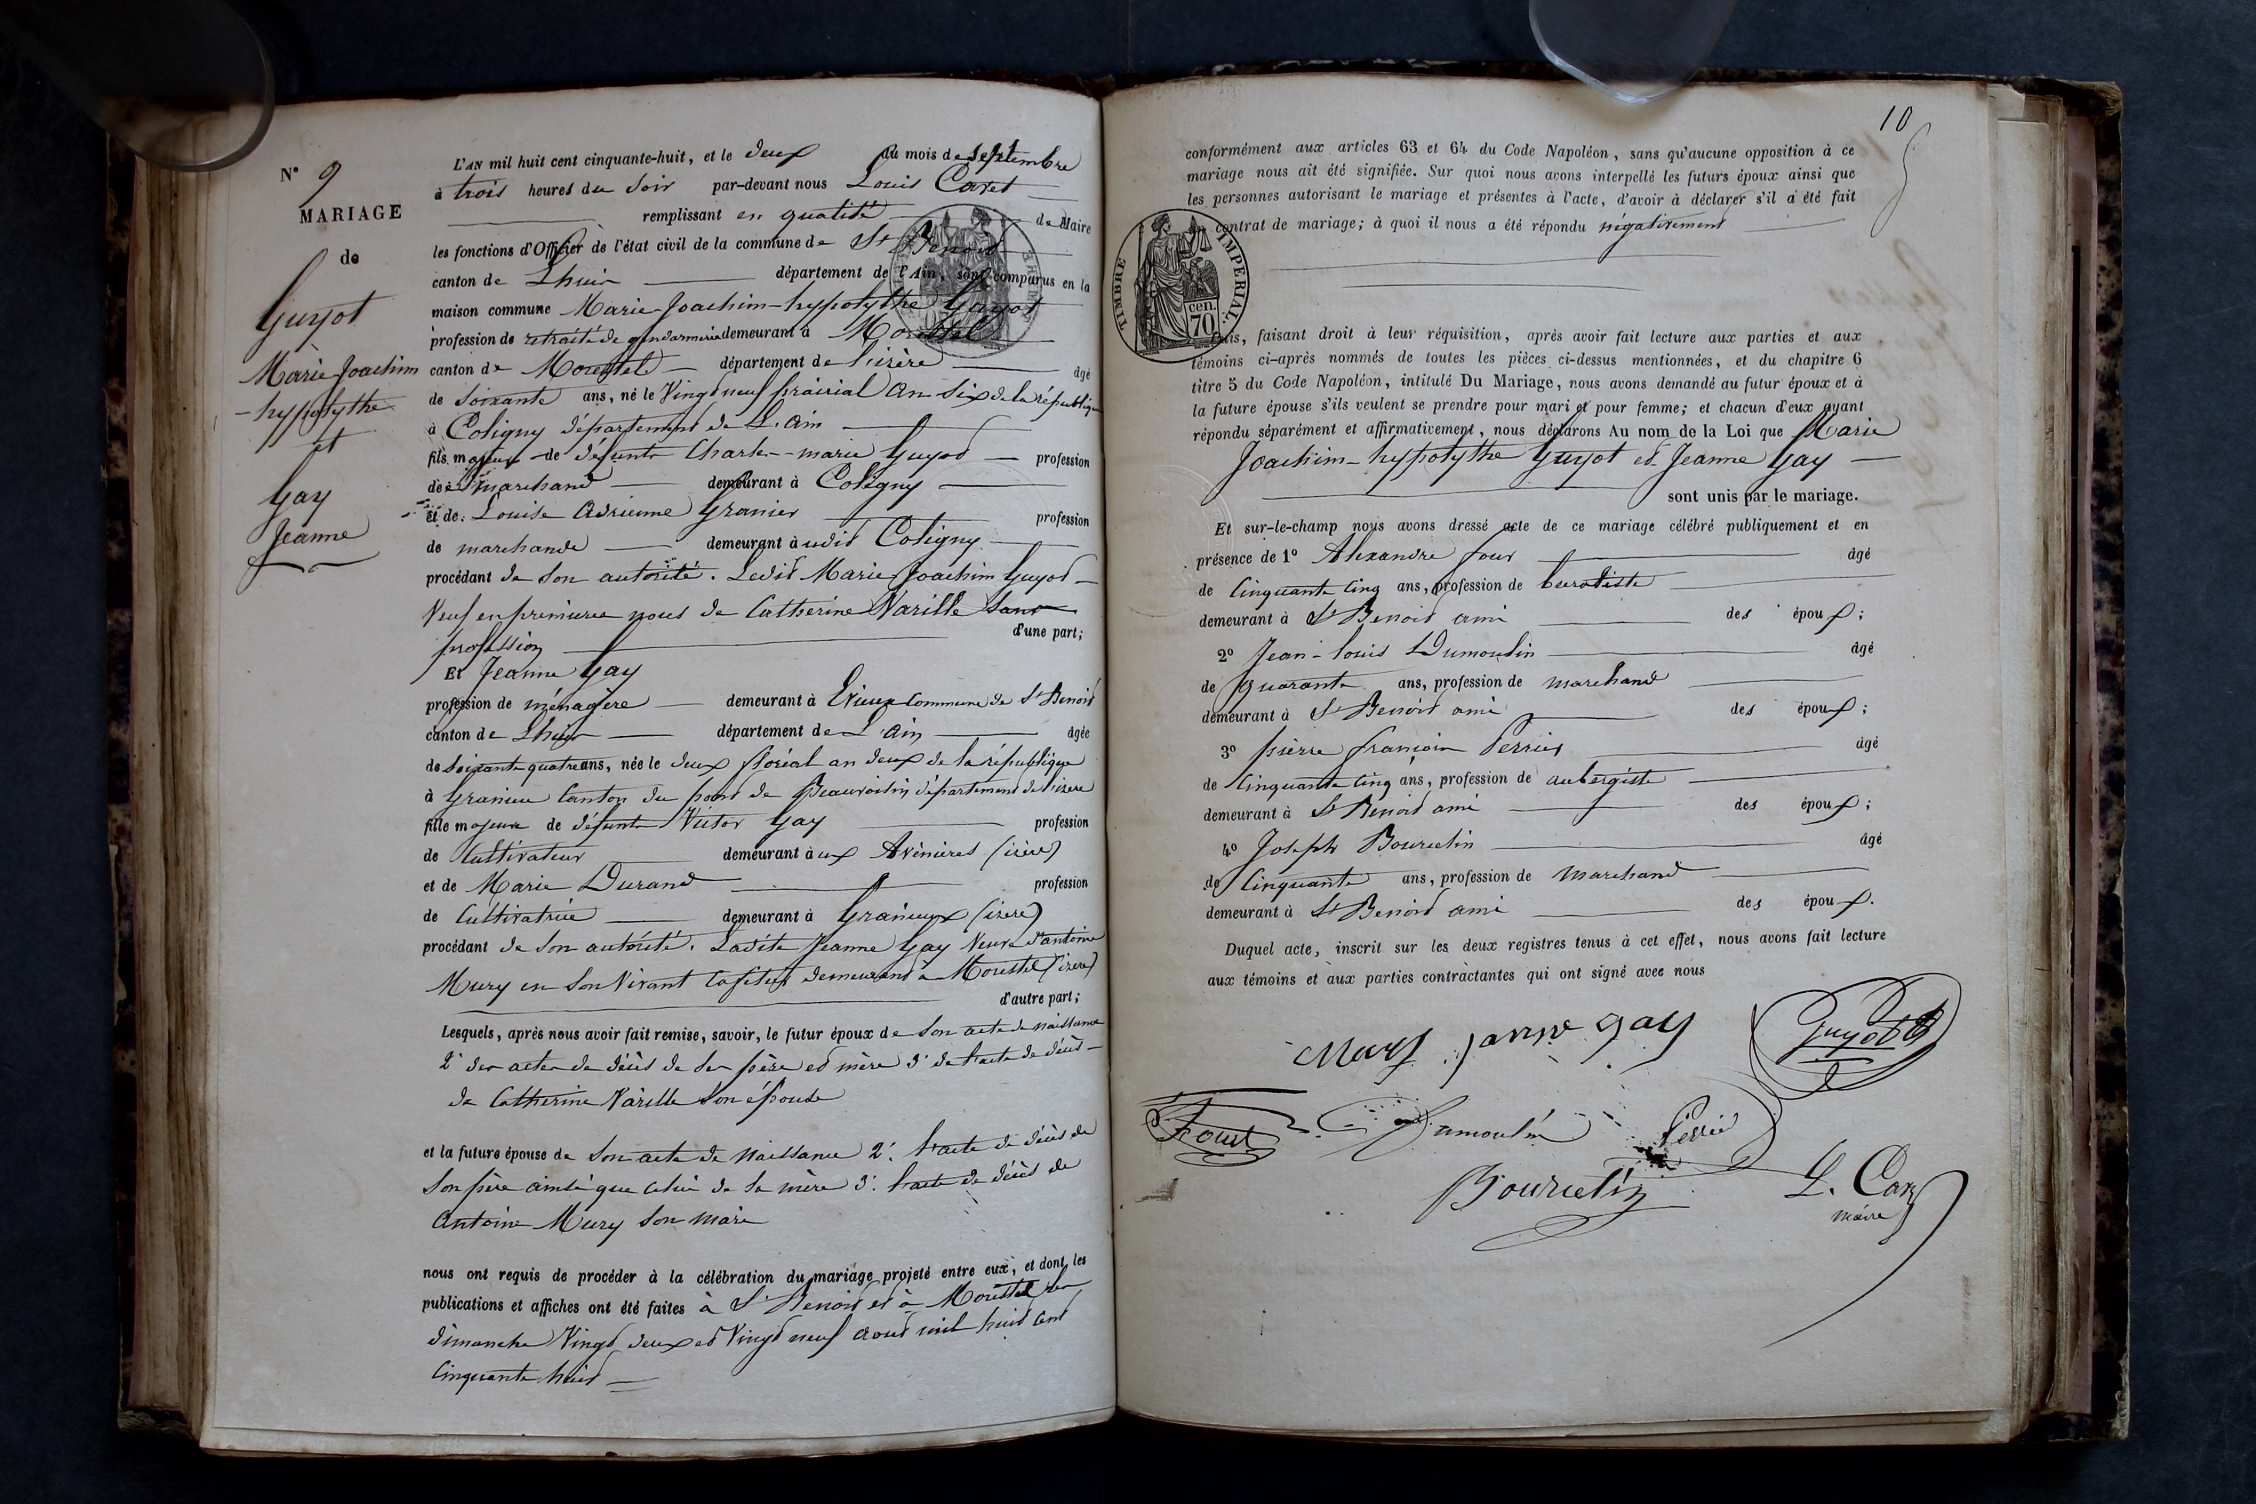 N° 9
MARIAGE
de
Guyot
Marie Joachim
-hyppolythe
et
Gay
Jeanne
L'AN mil huit cent cinquante-huit, et le deux du mois de septembre
à trois heures du soir par-devant nous Louis Caret
remplissant en qualité de Maire
les fonctions d'Officier de l'état civil de la commune de St Benoit
canton de Lhuis département de l'Ain, sont comparus en la
maison commune Marie Joachim-hyppolythe Guyot
profession de retraité de gendarmerie demeurant à Morestel
canton de Morestel département de l'isère âgé
de Soixante ans, né le Vingt neuf prairial an Six de la république
à Coligny département de L'ain
fils majeur de défunts Charle-marie Guyot profession
de marchand demeurant à Coligny
et de Louise Adrienne Granier profession
de marchande demeurant à udit Coligny
procédant de son autorité. Ledit Marie Joachim Guyot
Veuf en premieres noces de Catherine Varille Sans
profession d'une part;
Et Jeanne Gay
profession de ménagère demeurant à Evieux commune de St Benoit
canton de Lhuis département de L'ain âgée
de Soixante quatre ans, née le deux floréal an deux de la république
à Granieu Canton du pont de Beauvoisin département de l'isère
fille majeure de défunts Victor Gay profession
de Cultivateur demeurant à ux Avenieres (isère)
et de Marie Durand profession
de Cultivatrice demeurant à Granieux (isère)
procédant de son autorité. Ladite Jeanne Gay Veuve d'antoine
Mury en son Vivant demeurant à Morestel (isère)
d'autre part;
Lesquels, après nous avoir fait remise, savoir, le futur époux de son acte de naissance
2° des actes de décès de ses père et mère 3° de l'acte de décès
de Catherine Varille son épouse
et la future épouse de son acte de naissance 2° l'acte de décès de
son père ainsi que celui de sa mère 3° l'acte de décès de
antoine Mury son mari
nous ont requis de procéder à la célébration du mariage projeté entre eux, et dont les
publications et affiches ont été faites à St Benoit et à Morestel les
dimanche Vingt deux et Vingt neuf aout mil huit cent
Cinquante huit
10
conformément aux articles 63 et 64 du Code Napoléon, sans qu'aucune opposition à ce
mariage nous ait été signifiée. Sur quoi nous avons interpellé les futurs époux ainsi que
les personnes autorisant le mariage et présentes à l'acte, d'avoir à déclarer s'il a été fait
contrat de mariage; à quoi il nous a été répondu négativement
TIMBRE IMPERIAL.
70 cen.
Puis, faisant droit à leur réquisition, après avoir fait lecture aux parties et aux
témoins ci-après nommés de toutes les pièces ci-dessus mentionnées, et du chapitre 6
titre 5 du Code Napoléon, intitulé Du Mariage, nous avons demandé au futur époux et à
la future épouse s'ils veulent se prendre pour mari et pour femme; et chacun d'eux ayant
répondu séparément et affirmativement, nous déclarons Au nom de la Loi que Marie
Joachim-hyppolythe Guyot et Jeanne Gay
sont unis par le mariage.
Et sur-le-champ nous avons dressé acte de ce mariage célébré publiquement et en
présence de 1° Alexandre four âgé
de Cinquante cinq ans, profession de buraliste
demeurant à St Benoit ami des époux;
2° Jean-louis Dumoulin âgé
de quarante ans, profession de marchand
demeurant à St Benoit ami des époux;
3° pierre françois Perrier âgé
de Cinquante cinq ans, profession de aubergiste
demeurant à St Benoit ami des époux;
4° Joseph Bourcelin âgé
de Cinquante ans, profession de marchand
demeurant à St Benoit ami des époux.
Duquel acte, inscrit sur les deux registres tenus à cet effet, nous avons fait lecture
aux témoins et aux parties contractantes qui ont signé avec nous
gay
Guyot
Dumoulin
Bourcelin
L. Caret
maire